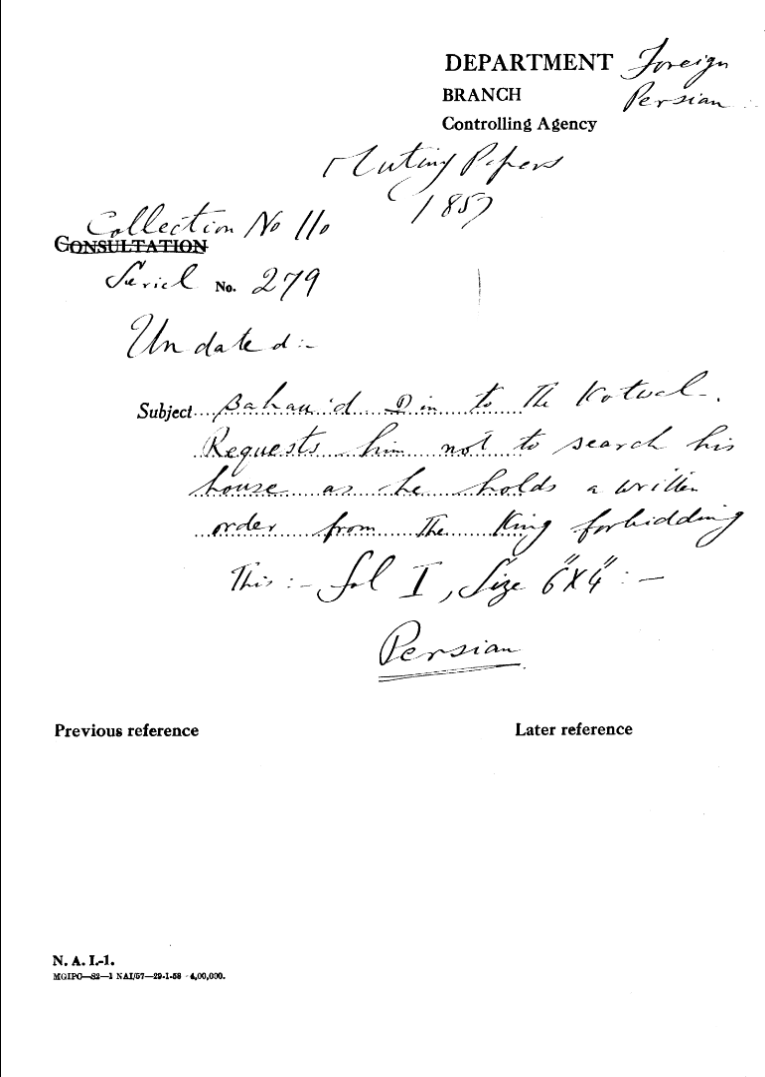 DEPARTMENT Foreign
BRANCH Persian
Controlling Agency
Mutiny Papers
1857
Collection No 110
CONSULTATION
Serial No. 279
Undated:-
Subject Baha u'd Din to the Kotwal.
Requests him not to search his
house as he holds a written
order from the King forbidding
This:- Fol I, Size 6"X4":-
Persian
Previous reference Later reference
N. A. I.-1.
MGIPC—S2—1 NAI/57—29-1-58—4,00,000.